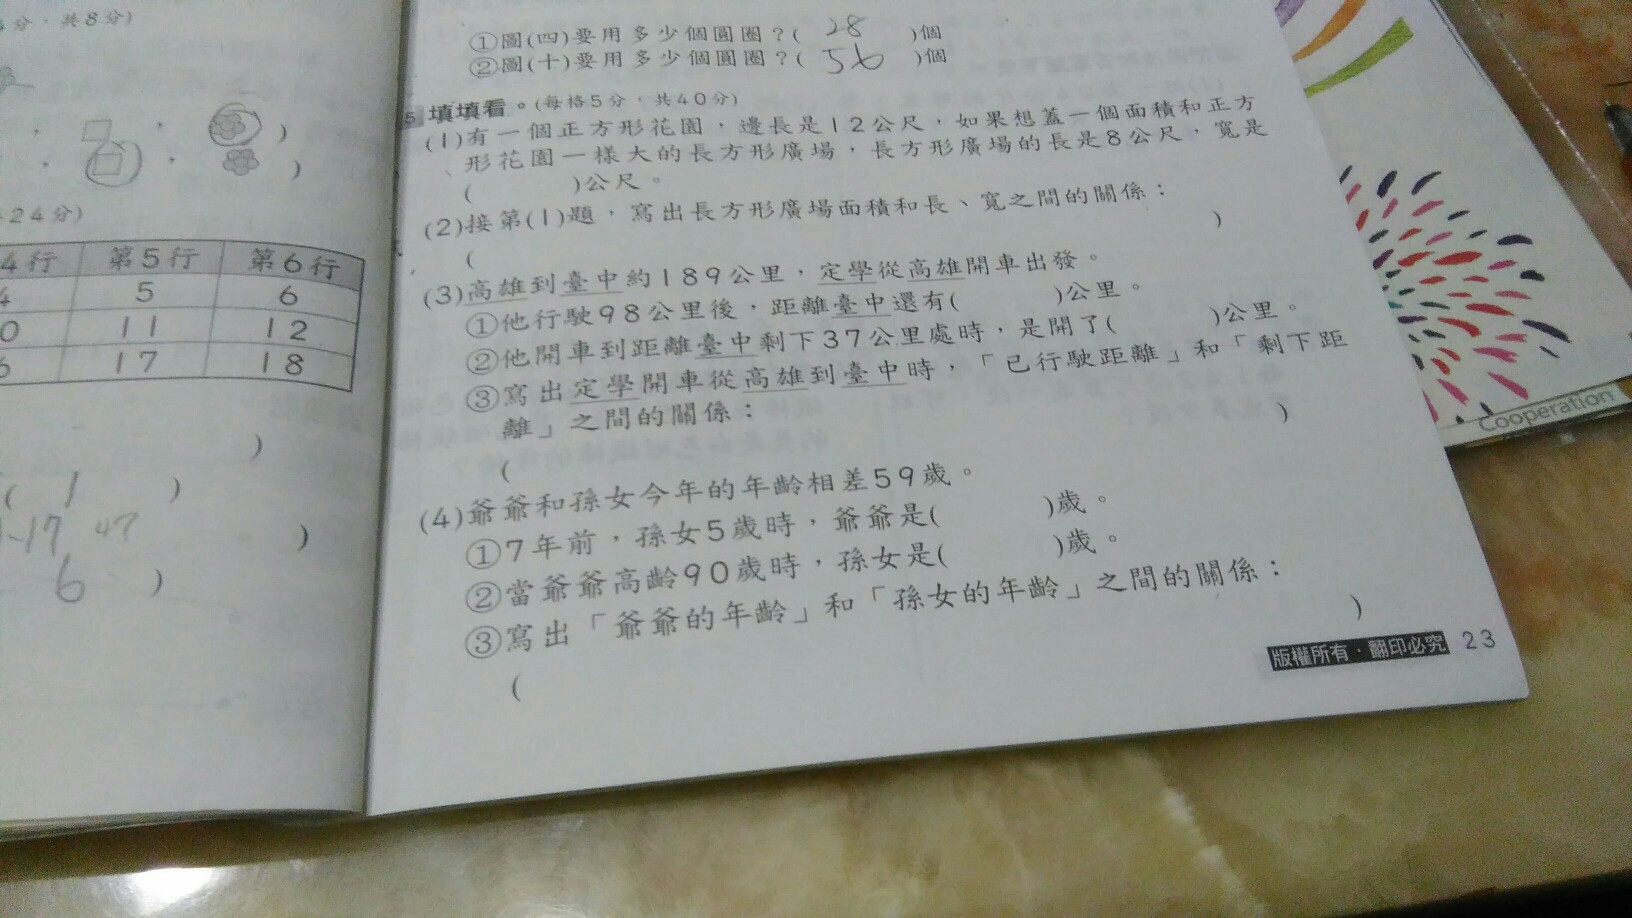 4分，共8分)
24分)
4行 第5行 第6行
4 5 6
0 11 12
6 17 18
)
( 1 )
)
6 )
①圖(四)要用多少個圓圈？( 28 )個
②圖(十)要用多少個圓圈？( 56 )個
5 填填看。(每格5分，共40分)
(1)有一個正方形花園，邊長是12公尺，如果想蓋一個面積和正方
形花園一樣大的長方形廣場，長方形廣場的長是8公尺，寬是
( )公尺。
(2)接第(1)題，寫出長方形廣場面積和長、寬之間的關係：
( )
(3)高雄到臺中約189公里，定學從高雄開車出發。
①他行駛98公里後，距離臺中還有( )公里。
②他開車到距離臺中剩下37公里處時，是開了( )公里。
③寫出定學開車從高雄到臺中時，「已行駛距離」和「剩下距
離」之間的關係：
( )
(4)爺爺和孫女今年的年齡相差59歲。
①7年前，孫女5歲時，爺爺是( )歲。
②當爺爺高齡90歲時，孫女是( )歲。
③寫出「爺爺的年齡」和「孫女的年齡」之間的關係：
( )
版權所有・翻印必究 23
Cooperation